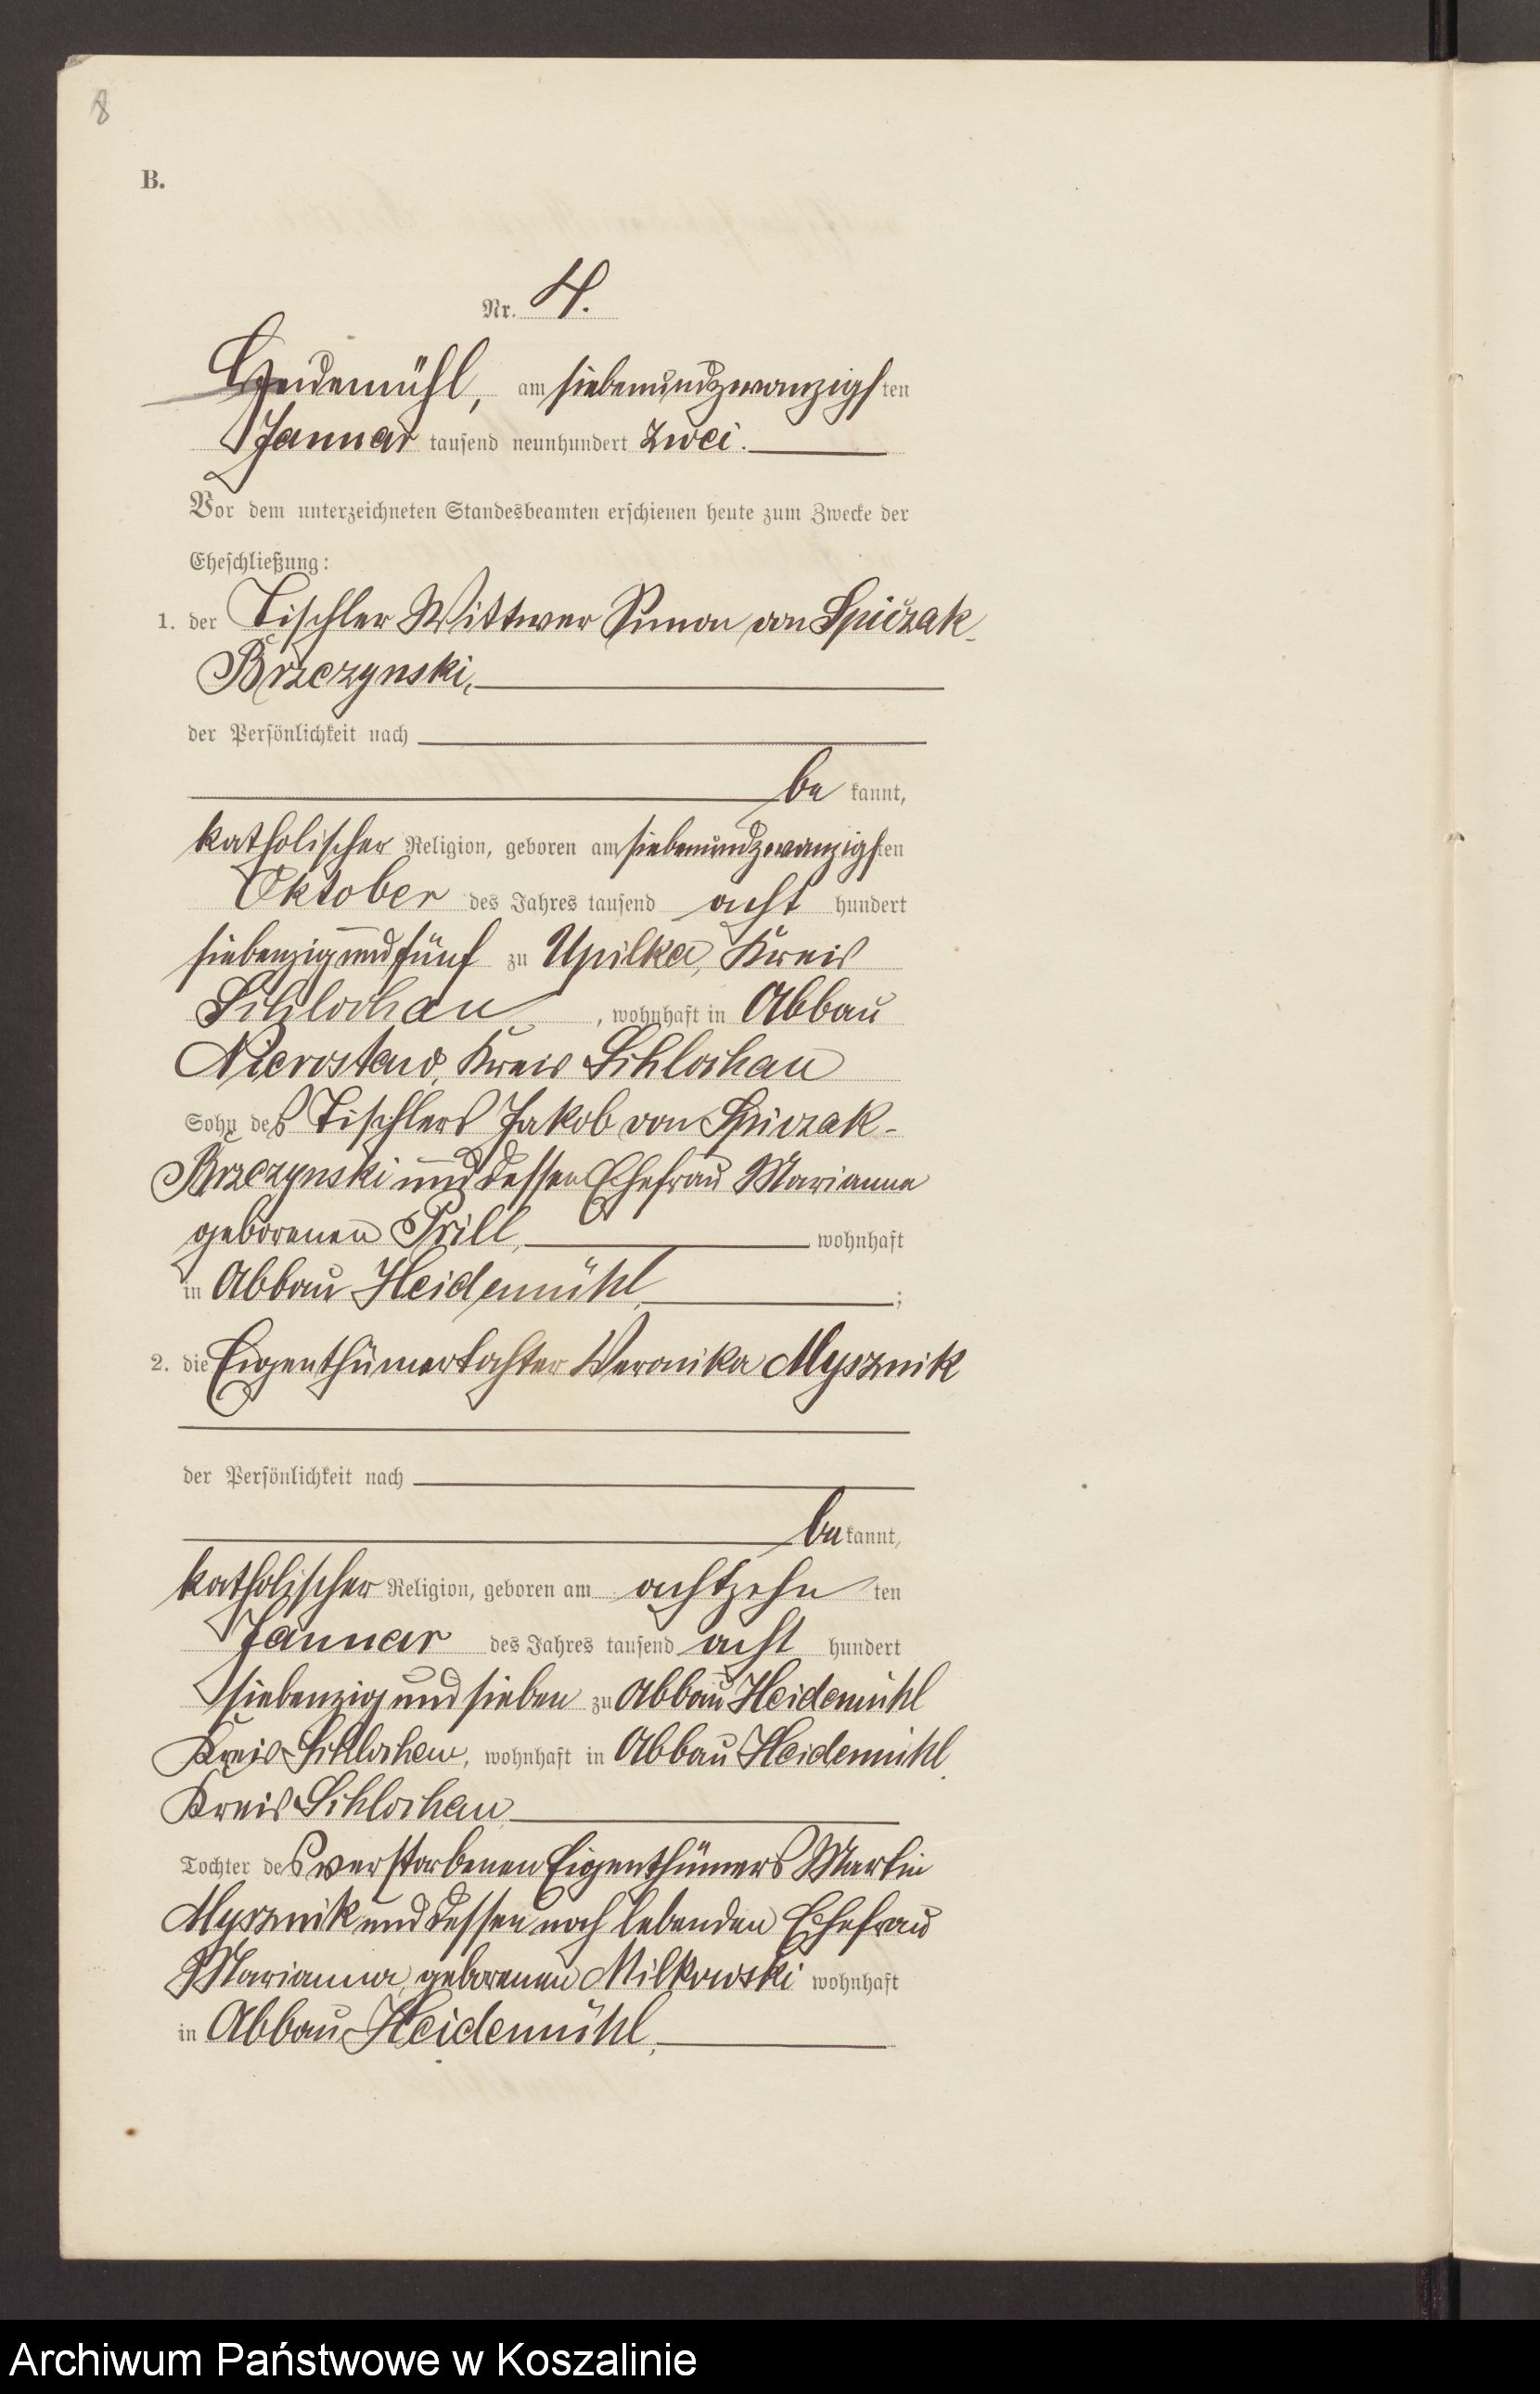 8
B.
Nr. 4.
Heidemühl, am siebenundzwanzigsten
Januar tausend neunhundert zwei.
Vor dem unterzeichneten Standesbeamten erschienen heute zum Zwecke der
Eheschließung:
1. der Tischler Wittwer Simon von Spiczak-
Brzezynski,
der Persönlichkeit nach
be kannt,
katholischer Religion, geboren am siebenundzwanzigsten
Oktober des Jahres tausend acht hundert
siebenzig und fünf zu Upilka, Kreis
Schlochau, wohnhaft in Abbau
Nierostaw, Kreis Schlochau
Sohn des Tischlers Jakob von Spiczak-
Brzezynski und dessen Ehefrau Marianna
geborenen Prill, wohnhaft
in Abbau Heidemühl, ;
2. die Eigenthümertochter Veronika Mysznik
der Persönlichkeit nach
be kannt,
katholischer Religion, geboren am achtzehn ten
Januar des Jahres tausend acht hundert
siebenzig und sieben zu Abbau Heidemühl
Kreis Schlochau, wohnhaft in Abbau Heidemühl,
Kreis Schlochau
Tochter des verstorbenen Eigenthümers Martin
Mysznik und dessen noch lebenden Ehefrau
Marianna geborenen Milkowski wohnhaft
in Abbau Heidemühl,
Archiwum Państwowe w Koszalinie